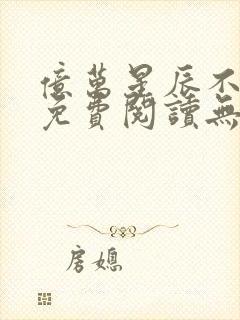 億萬星辰不
免費閱讀無
房媳